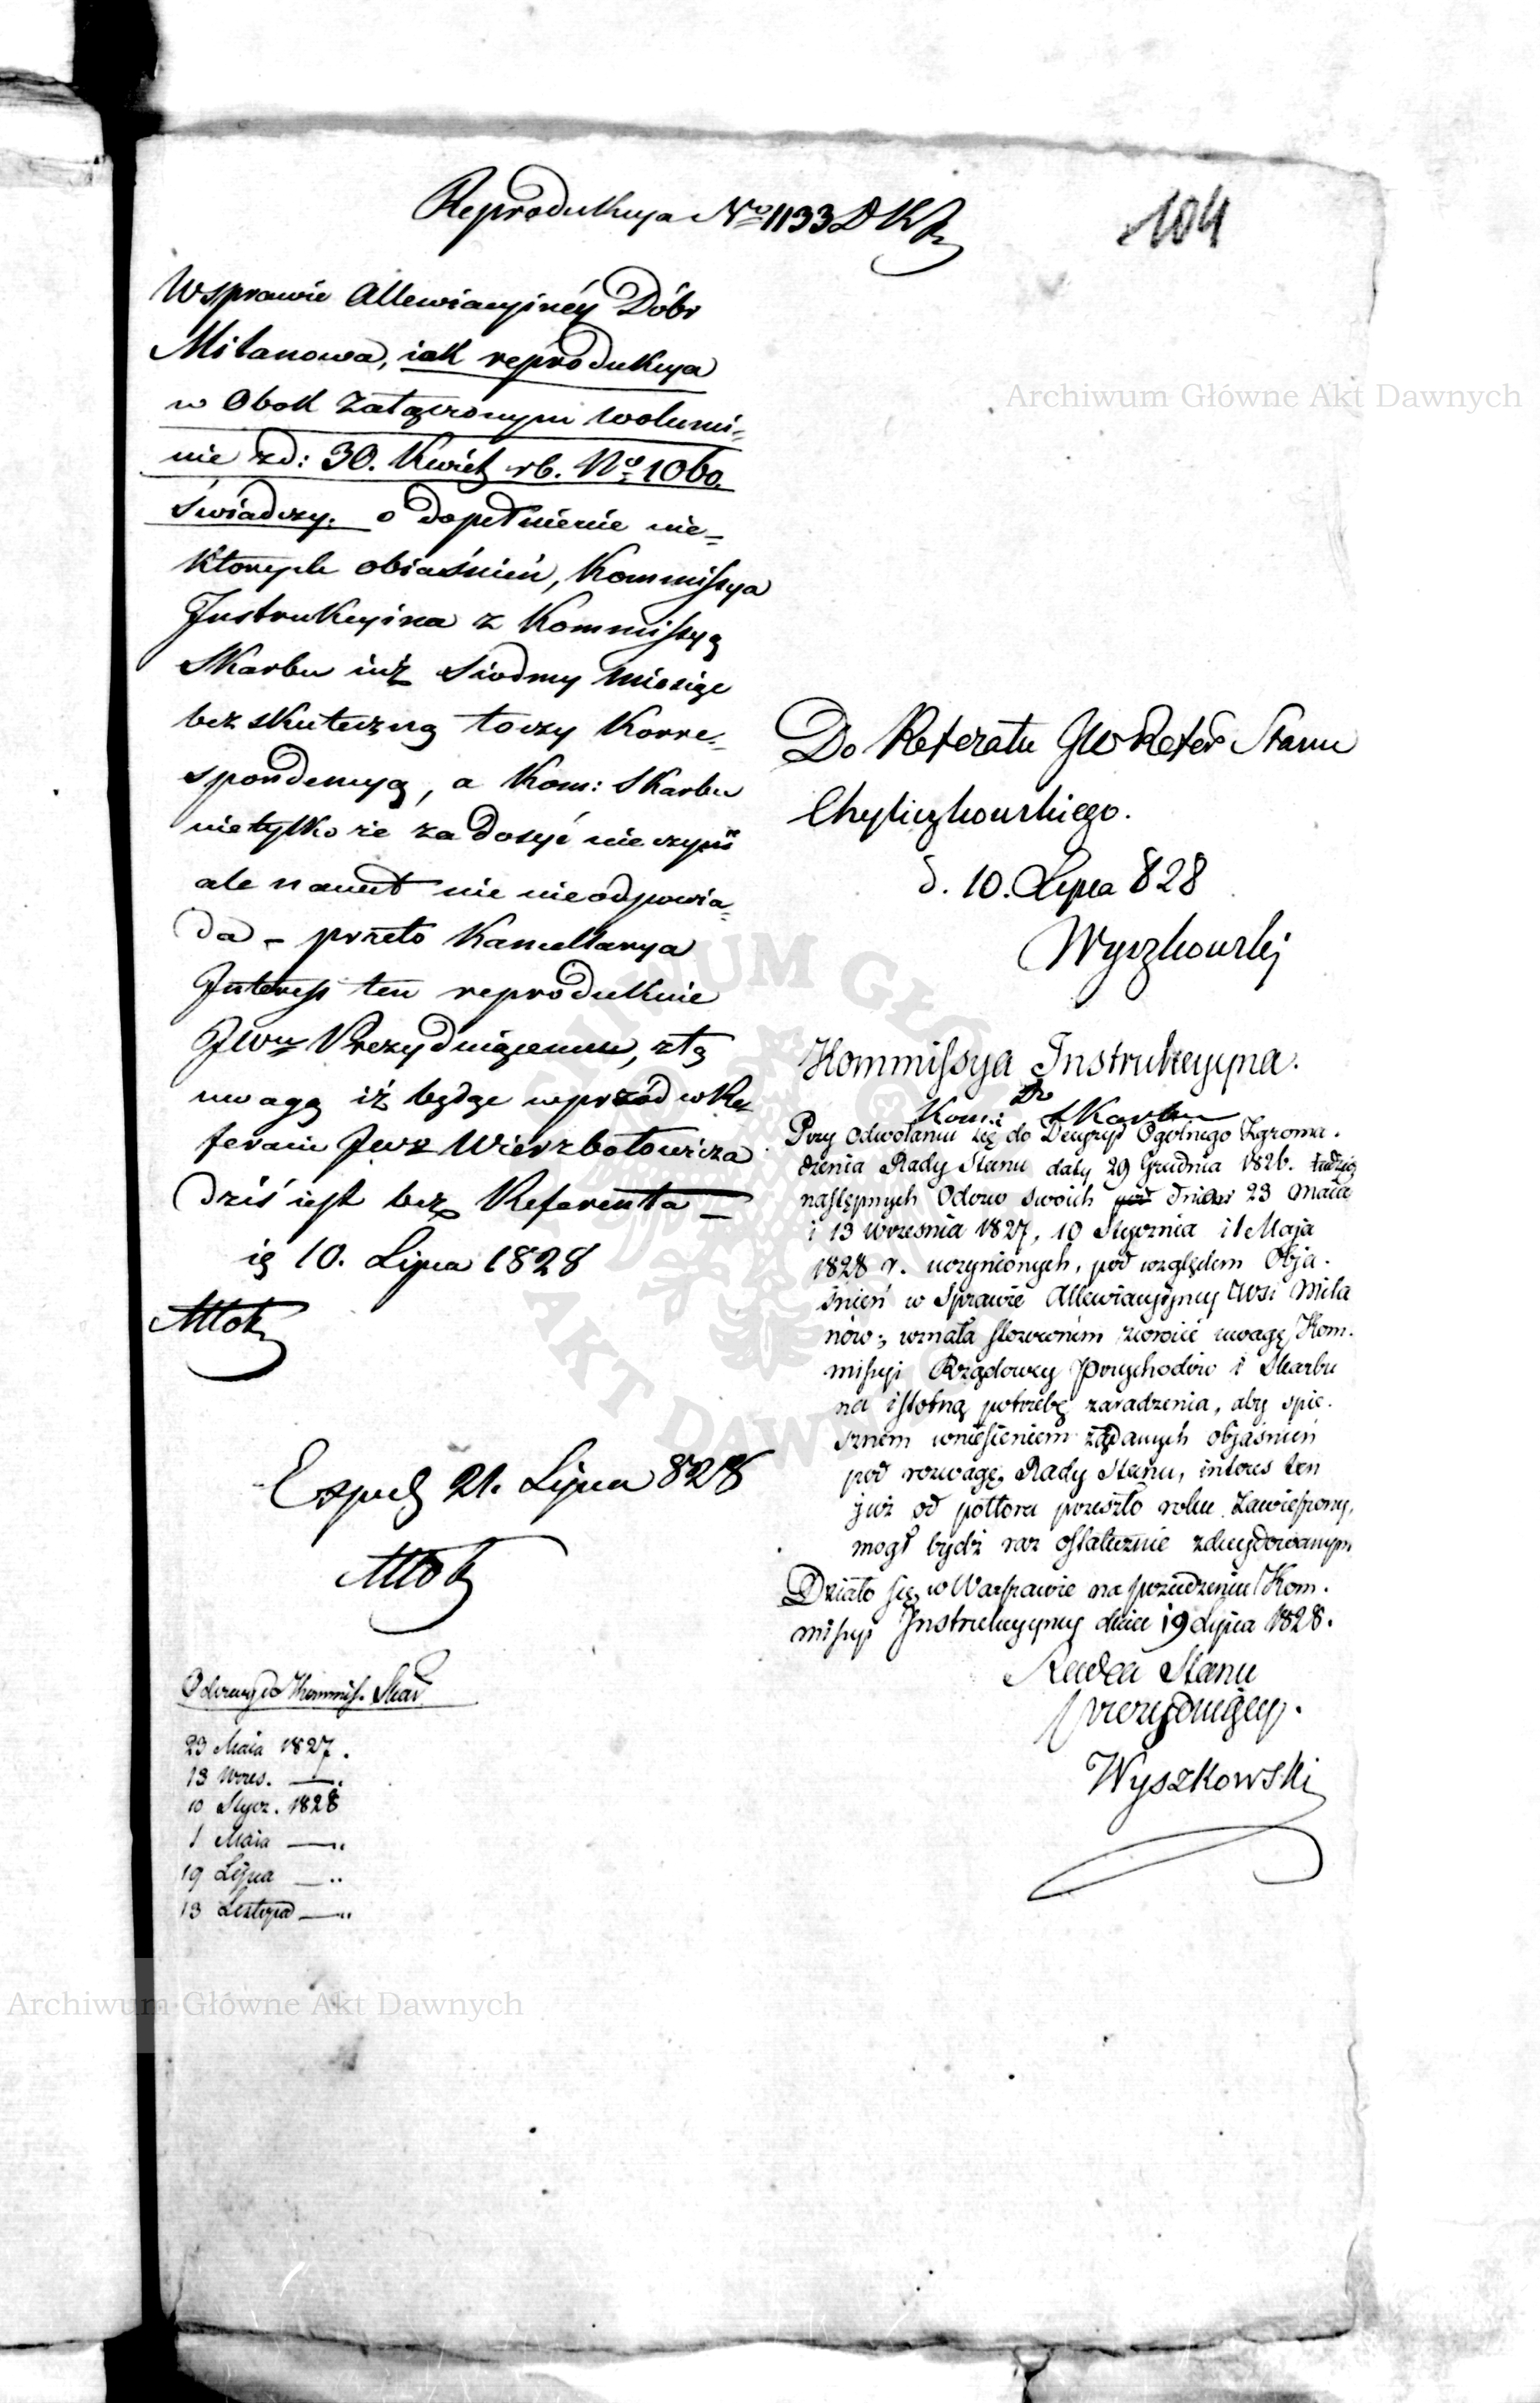 Reprodukcya No 1133 D K
104
W sprawie Allewiacyjnéy Dóbr
Milanowa, iak reprodukcya
w obok załączonym wolumi=
nie zd: 30. Kwiet rb. No 1060.
świadczy. o dopełnienie nie=
których obiaśnień, Kommissya
Instrukcyina z Kommissyą
Skarbu iuż siodmy miesiąc
bezskuteczną toczy Korre=
spondencyą, a Kom: Skarbu
nietylko że zadosyć nie czyni
ale nawet nic nieodpowia=
da - przeto Kancellarya
Interess ten reprodukuie
JWu Prezyduiącemu, z tą
uwagą iż będąc wprzód w Re=
feracie JWo Wierzbołowicza
dziś iest bez Referenta
10. Lipca 1828
Exped 21. Lipca 828
Odezwy do Kommis. Skar
23 Maia 1827.
13 Wrzes. —
10 Stycz. 1828
1 Maia —
19 Lipca —
13 Listopad —
Do Referatu JW Refer Stanu
Chyliczkowskiego.
d. 10. Lipca 828
Wyszkowski
Kommissya Instrukcyyna.
Do
Kom: Skarbu
Przy odwołaniu się do Decyzyi Ogolnego Zgroma-
dzenia Rady Stanu daty 29 Grudnia 1826. tudzież
następnych Odezw swoich pod dniem 23 Maia
i 13 Wrzesnia 1827, 10 Stycznia i 1 Maja
1828 r. uczynionych, pod względem Obja-
śnień w Sprawie Allewiacyjney Wsi Mila
nów; uznała stosownem zwrócić uwagę Kom-
missyi Rządowey Przychodów i Skarbu
na istotną potrzebę zaradzenia, aby spie-
sznem wniesieniem żądanych objaśnień
pod rozwagę Rady Stanu, interes ten
już od półtora przeszło roku zawieszony,
mogł bydź raz ostatecznie zdecydowanym
Działo się w Warszawie na posiedzeniu Kom-
missyi Instrukcyyney dnia 19 Lipca 1828.
Radca Stanu
prezyduiący.
Wyszkowski
Archiwum Główne Akt Dawnych
Archiwum Główne Akt Dawnych
ARCHIWUM GŁÓWNE
AKT DAWNYCH